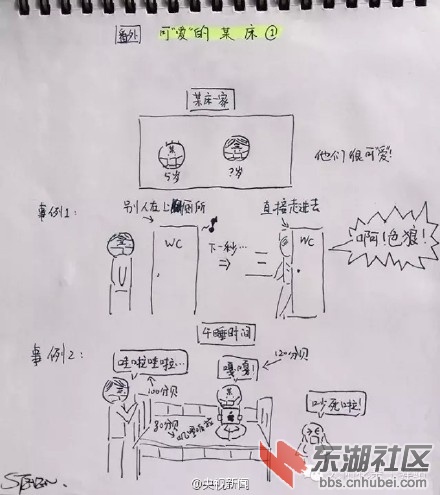 番外 可“爱”的某床①
某床一家
某
5岁
?岁
他们很可“爱”!
事例1:
别人在上厕所
WC
下一秒…
直接走进去
WC
啊!色狼!
午睡时间
事例2:
哇啦哇啦啦…
100分贝
嘎嘎!
120分贝
某
80分贝
吵死啦!
@央视新闻
东湖社区
bbs.cnhubei.com